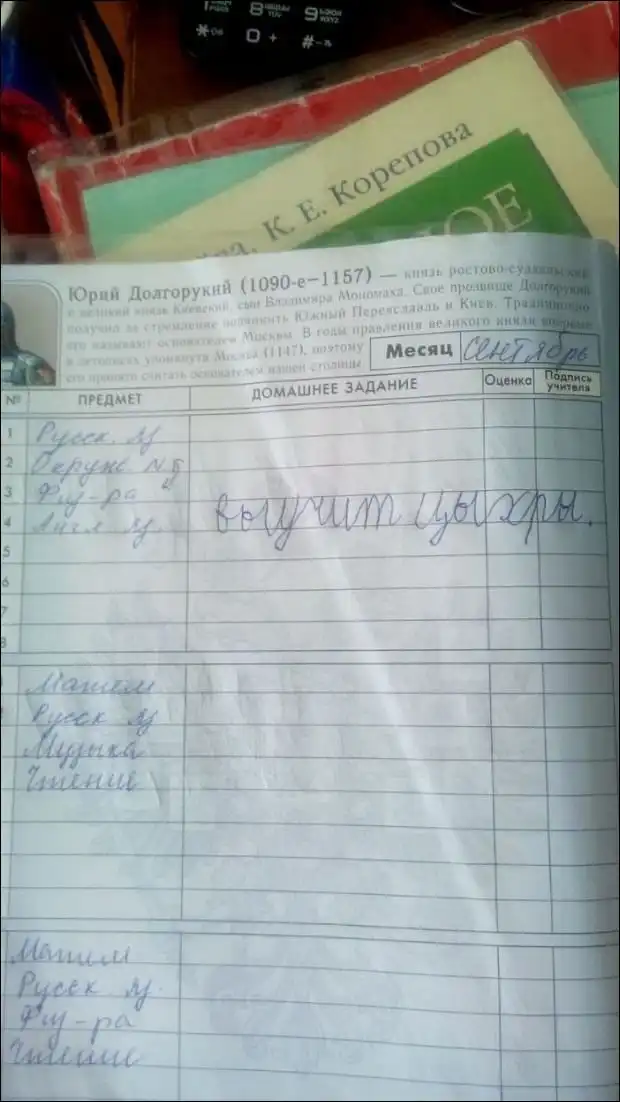 8 9
* 0 + #
К. Е. Корепова
НОЕ
Юрий Долгорукий (1090-е—1157) — князь ростово-суздальский
и великий князь Киевский, сын Владимира Мономаха. Свое прозвище Долгорукий
получил за стремление подчинить Южный Переяславль и Киев. Традиционно
его называют основателем Москвы. В годы правления великого князя впервые
в летописях упомянута Москва (1147), поэтому
его принято считать основателем нашей столицы
Месяц сентябрь
№ ПРЕДМЕТ ДОМАШНЕЕ ЗАДАНИЕ Оценка Подпись учителя
1 Русск. яз
2 Окруж.
3 Физ-ра
4 Англ яз. выучит цыхры.
5
6
7
8
Матем
Русск яз
Музыка
Чтение
Матем
Русск яз.
Физ-ра
Чтение